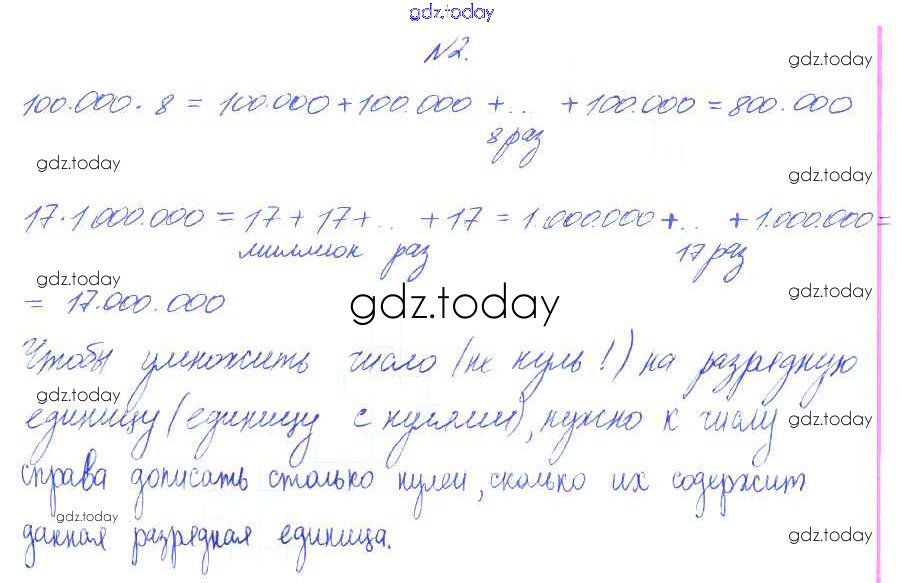 gdz.today
№2.
gdz.today
100.000 · 8 = 100.000 + 100.000 + ... + 100.000 = 800.000
8 раз
gdz.today
gdz.today
17 · 1.000.000 = 17 + 17 + ... + 17 = 1.000.000 + ... + 1.000.000 =
миллион раз 17 раз
gdz.today
gdz.today
= 17.000.000
gdz.today
Чтобы умножить число (не нуль!) на разрядную
gdz.today
единицу (единицу с нулями), нужно к числу
gdz.today
справа дописать столько нулей, сколько их содержит
gdz.today
данная разрядная единица.
gdz.today